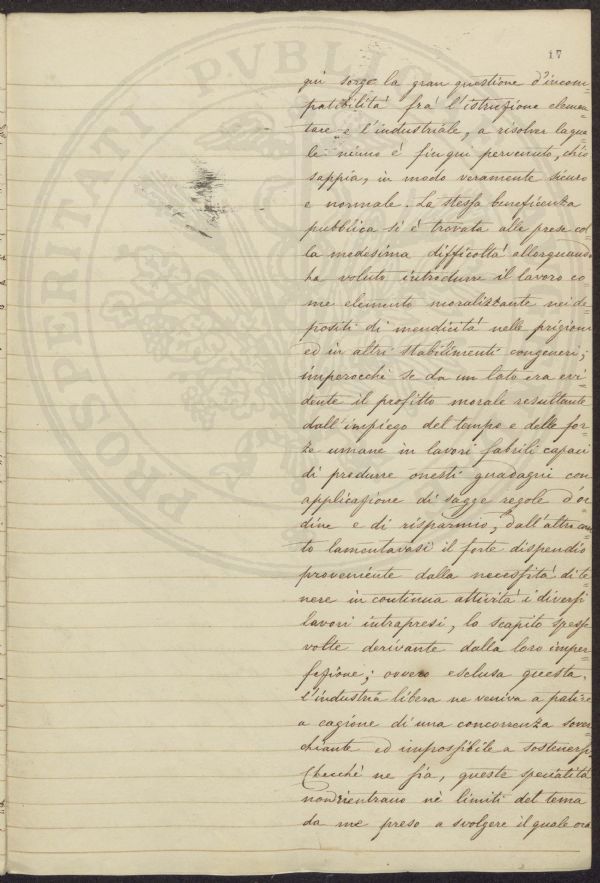 17
qui sorge la gran questione d'incom=
patibilità frà l'istruzione elemen=
tare e l'industriale, a risolver la qua=
le niuno è fin qui pervenuto, ch'io
sappia, in modo veramente sicuro
e normale. La stessa beneficenza
pubblica si è trovata alle prese col
la medesima difficoltà allorquando
ha voluto introdurre il lavoro co
me elemento moralizzante nei de=
positi di mendicità nelle prigioni
ed in altri stabilimenti congeneri;
imperocchè se da un lato era evi=
dente il profitto morale resultante
dall'impiego del tempo e delle for=
ze umane in lavori fabrili capaci
di produrre onesti guadagni con
applicazione di sagge regole d'or
dine e di risparmio, dall'altro can=
to lamentavasi il forte dispendio
proveniente dalla necessità di te=
nere in continua attività i diversi
lavori intrapresi, lo scapito spesse
volte derivante dalla loro imper=
fezione; ovvero esclusa questa,
l'industria libera ne veniva a patire
a cagione di una concorrenza sover=
chiante ed impossibile a sostenersi.
Checchè ne sia, queste specialità
non rientrano nè limiti del tema
da me preso a svolgere il quale ora
PROSPERITATI PVBLIC